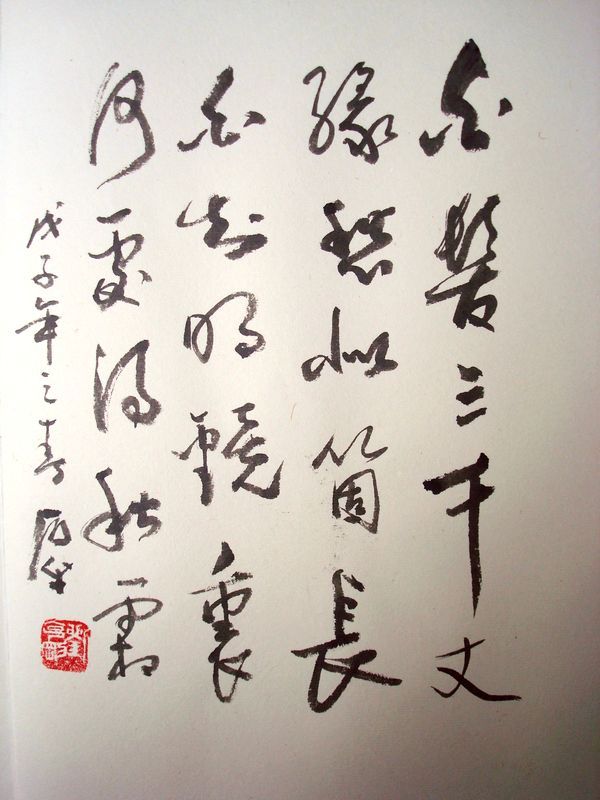 白髮三千丈
緣愁似箇長
不知明鏡裏
何處得秋霜
戊子年之春